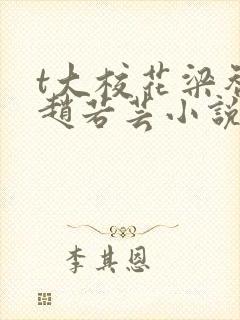 t大校花梁
趙若芸小說
李其恩